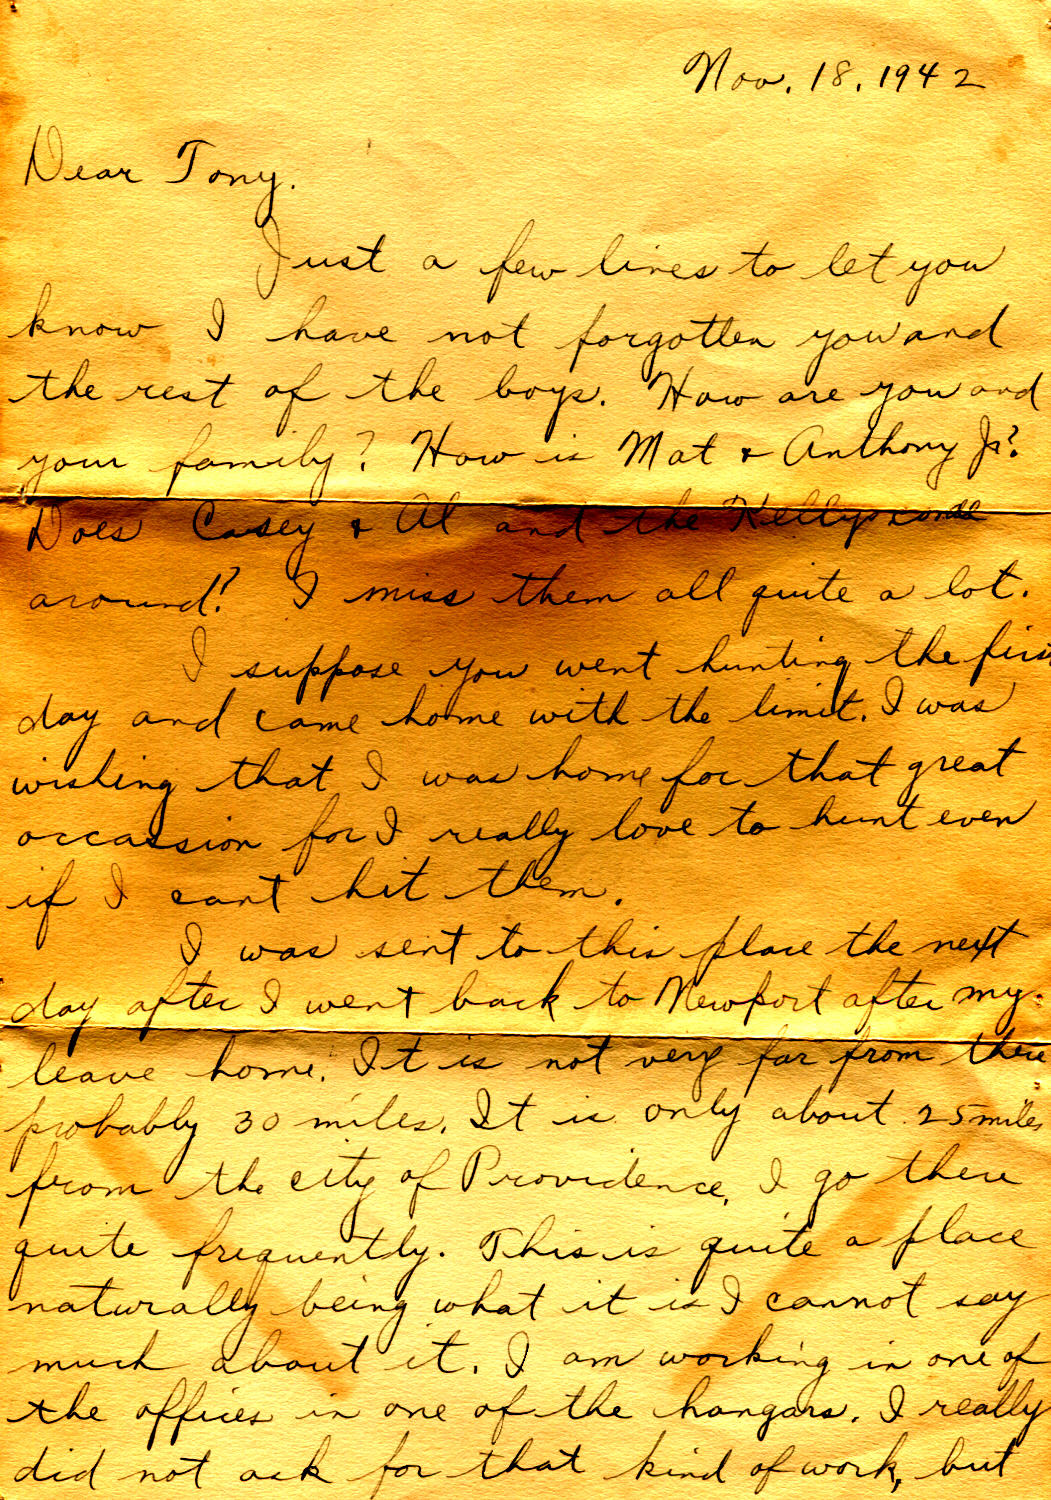 Nov. 18. 1942
Dear Tony.
Just a few lines to let you
know I have not forgotten you and
the rest of the boys. How are you and
your family? How is Mat & Anthony Jr?
Does Casey & Al and the Kellys come
around? I miss them all quite a lot.
I suppose you went hunting the first
day and came home with the limit. I was
wishing that I was home for that great
occassion for I really love to hunt even
if I cant hit them.
I was sent to this place the next
day after I went back to Newport after my
leave home. It is not very far from there
probably 30 miles. It is only about 25 miles
from the city of Providence, I go there
quite frequently. This is quite a place
naturally being what it is I cannot say
much about it. I am working in one of
the offices in one of the hangars. I really
did not ask for that kind of work, but